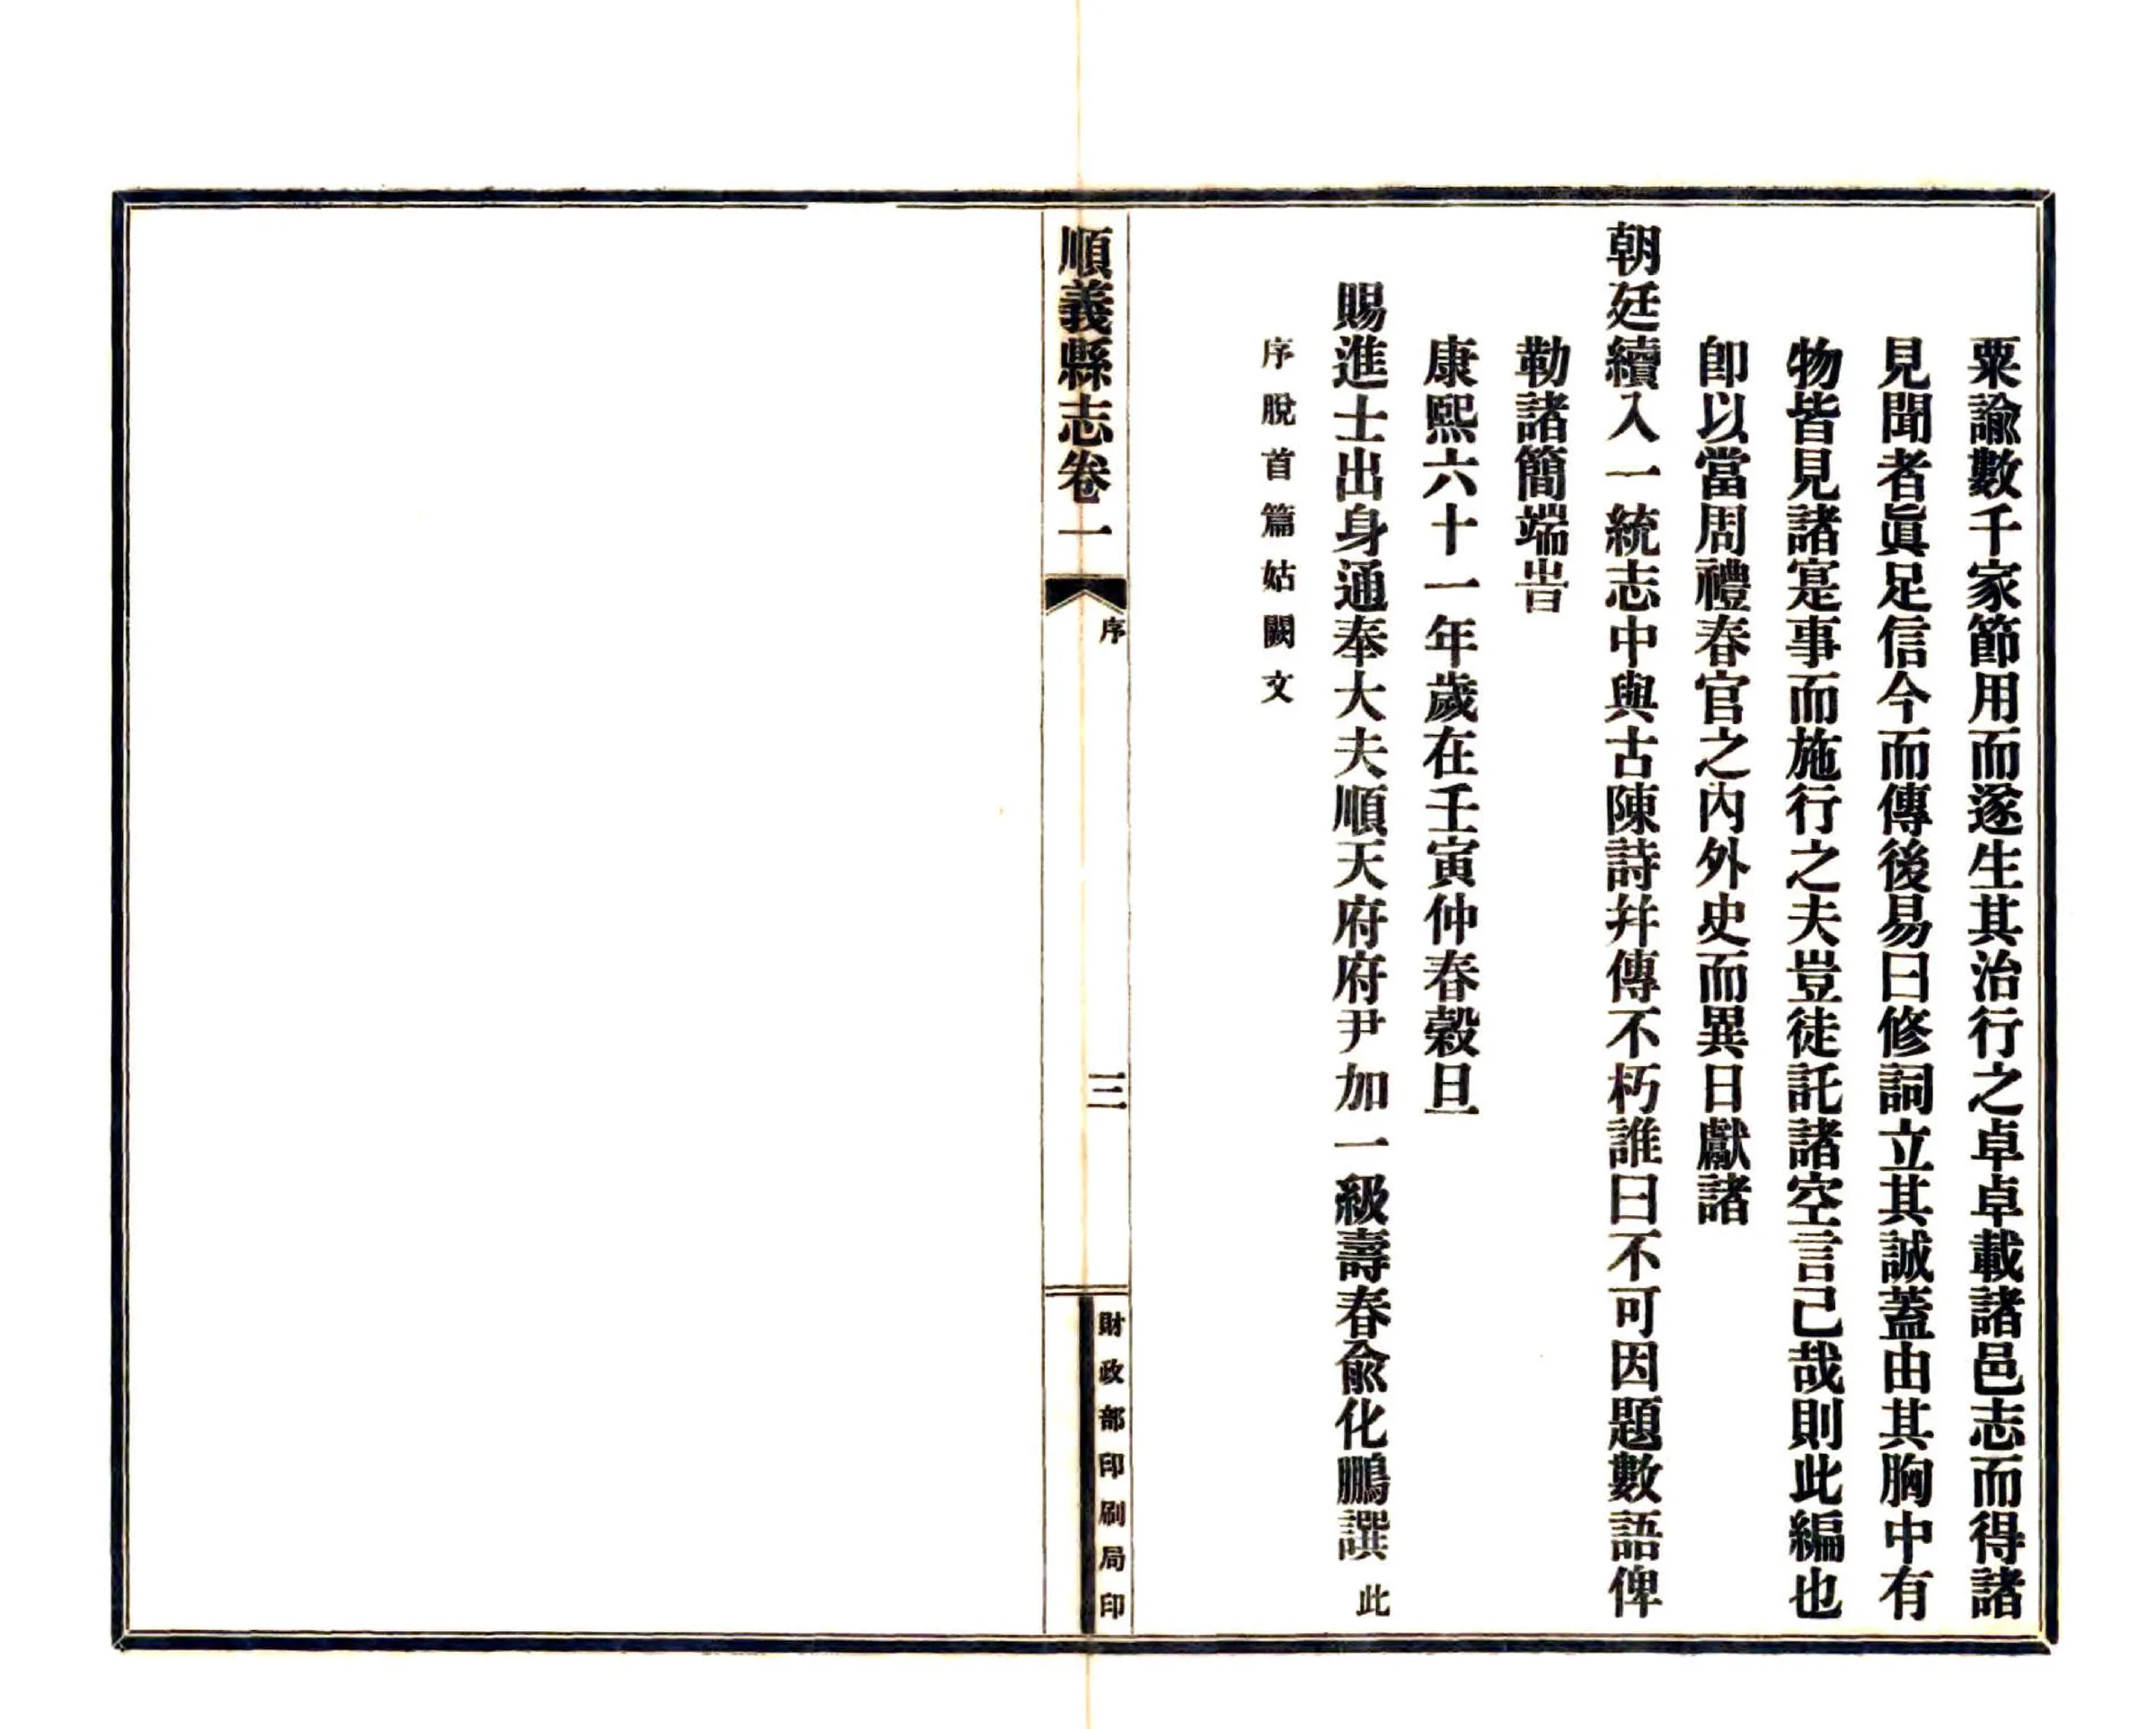 粟諭數千家節用而遂生其治行之卓卓載諸邑志而得諸
見聞者眞足信今而傳後易曰修詞立其誠蓋由其胸中有
物皆見諸寔事而施行之夫豈徒託諸空言已哉則此編也
卽以當周禮春官之內外史而異日獻諸
朝廷續入一統志中與古陳詩幷傳不朽誰曰不可因題數語俾
勒諸簡端旹
康熙六十一年歲在壬寅仲春穀旦
賜進士出身通奉大夫順天府府尹加一級壽春兪化鵬譔 此
序脫首篇姑闕文
順義縣志卷一
序
三
財政部印刷局印